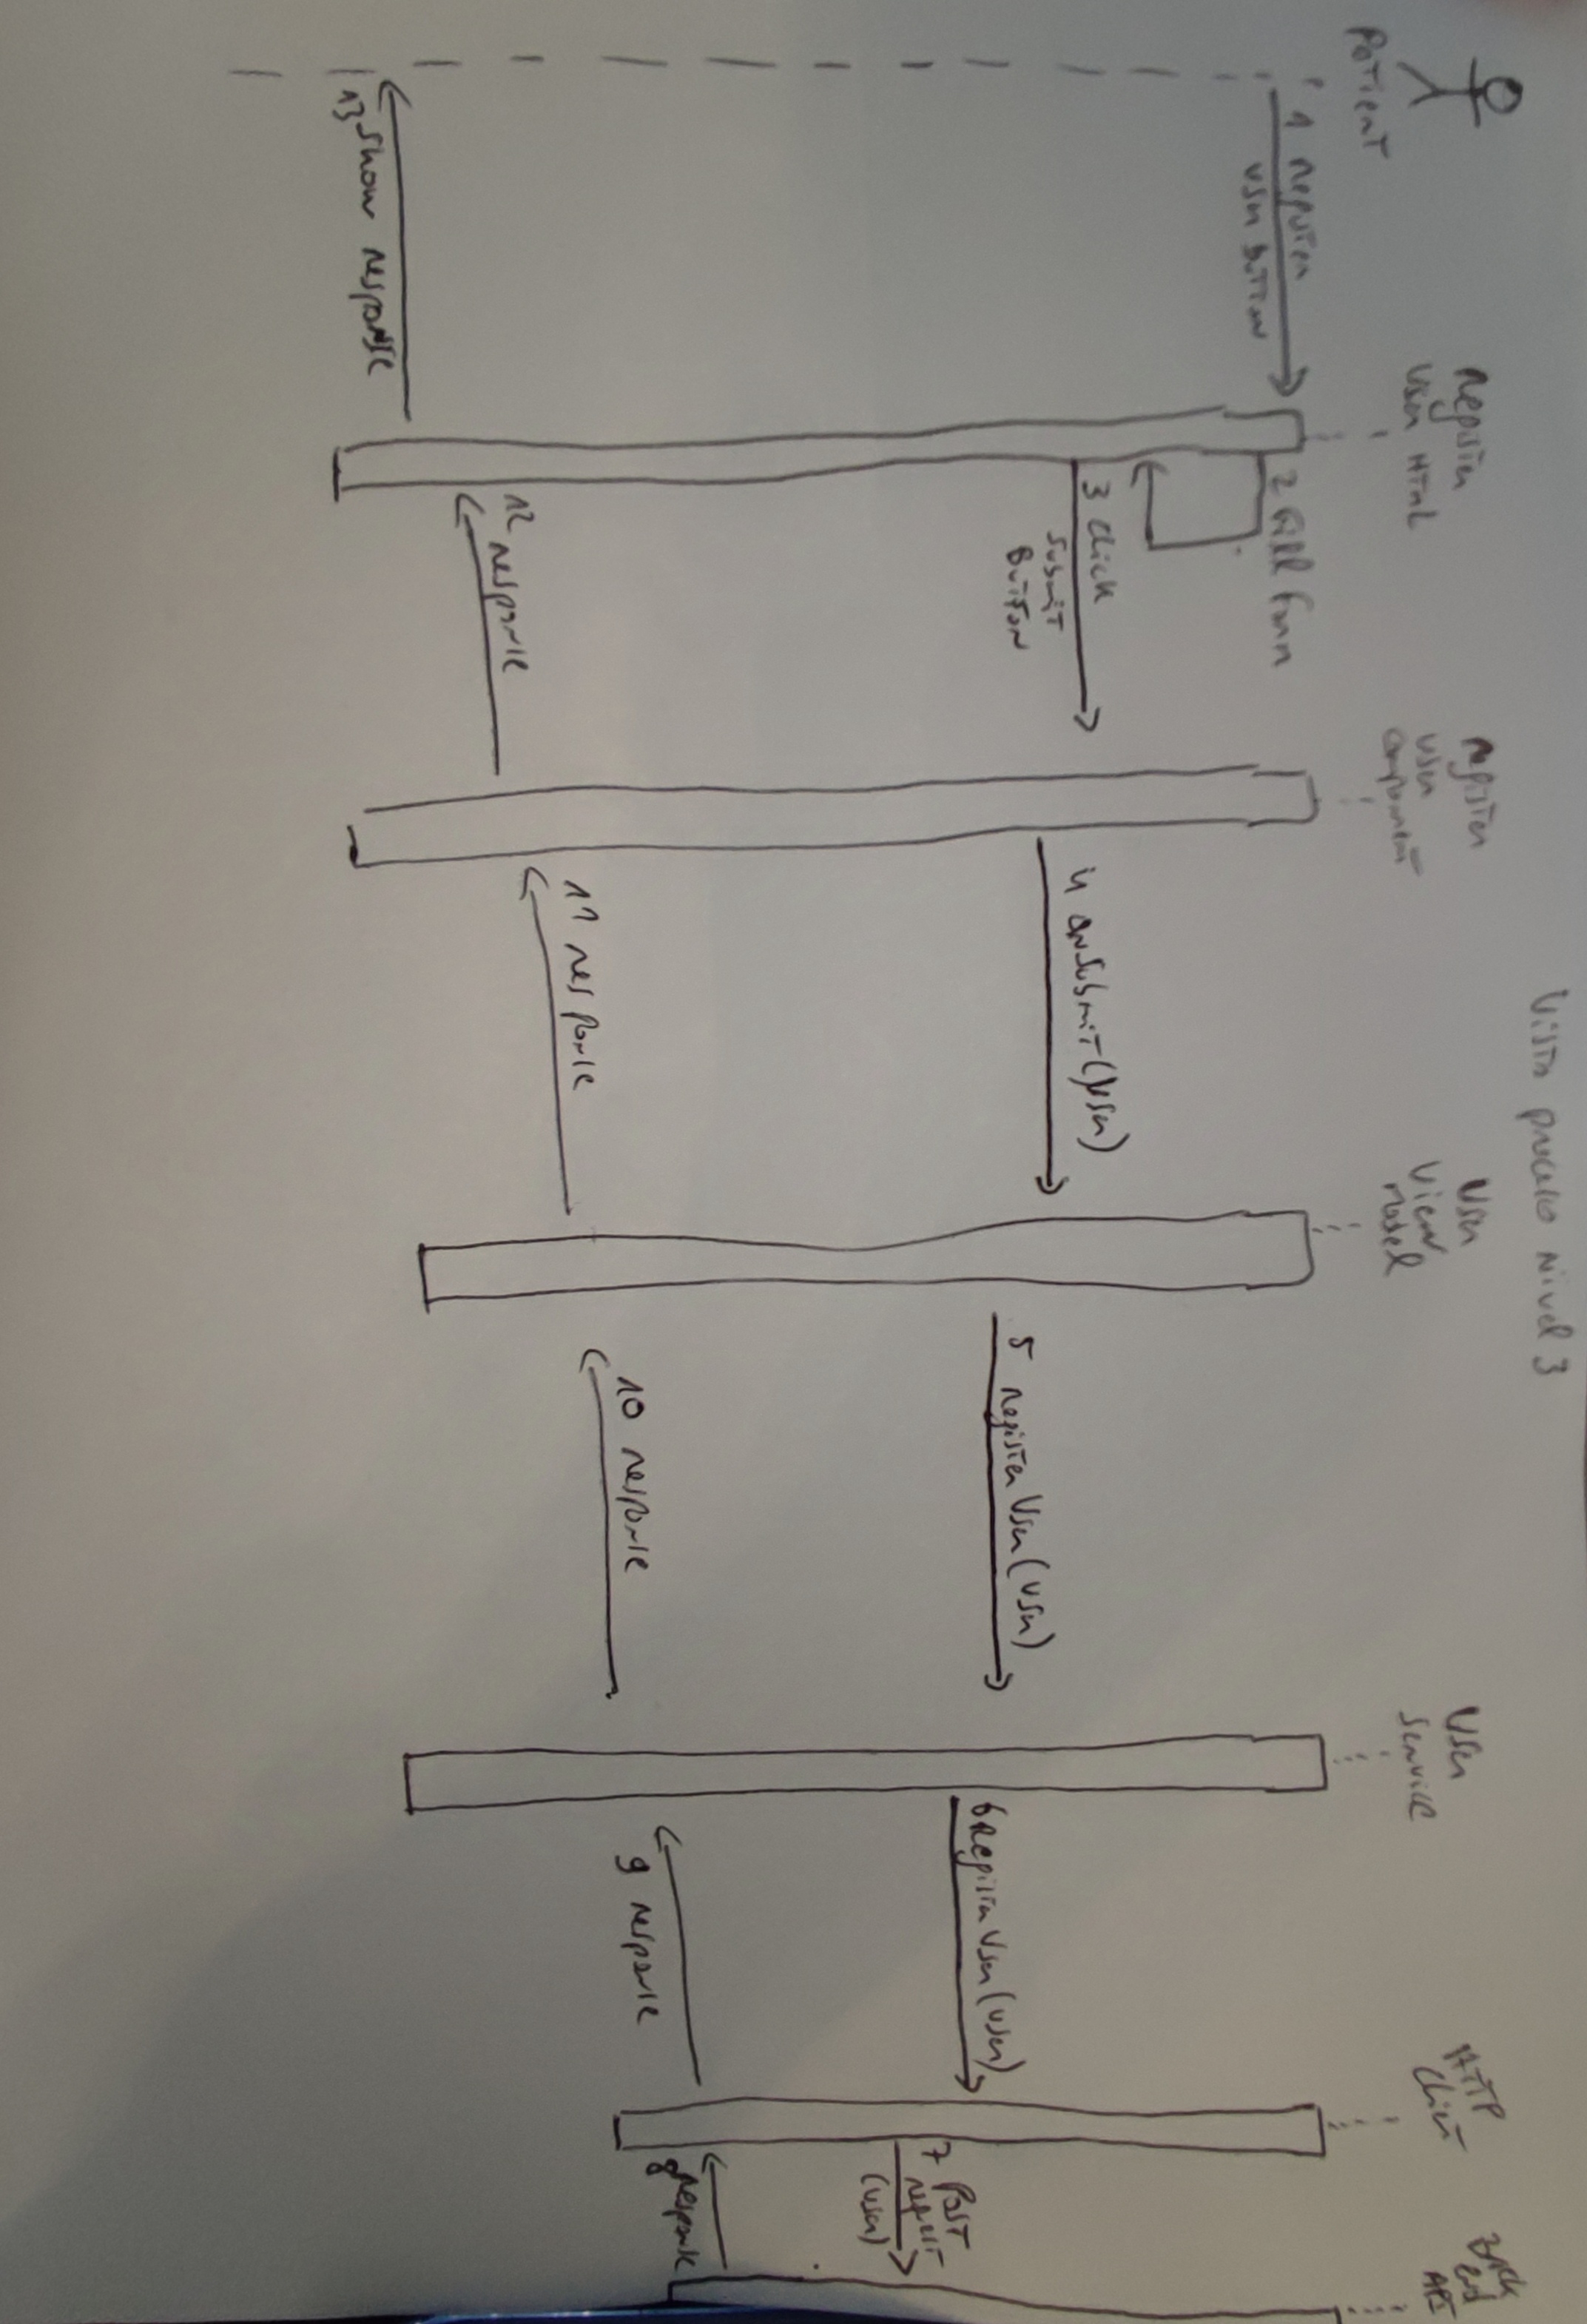 Vista processo nível 3
Patient
Register
User HTML
register
user
component
User
View
Model
User
Service
HTTP
Client
Back
end
API
1 register
user button
2 fill form
3 click
submit
Button
4 onSubmit(User)
5 registerUser(user)
6 RegisterUser(user)
7 Post
request
(user)
8 response
9 response
10 response
11 response
12 response
13 Show response